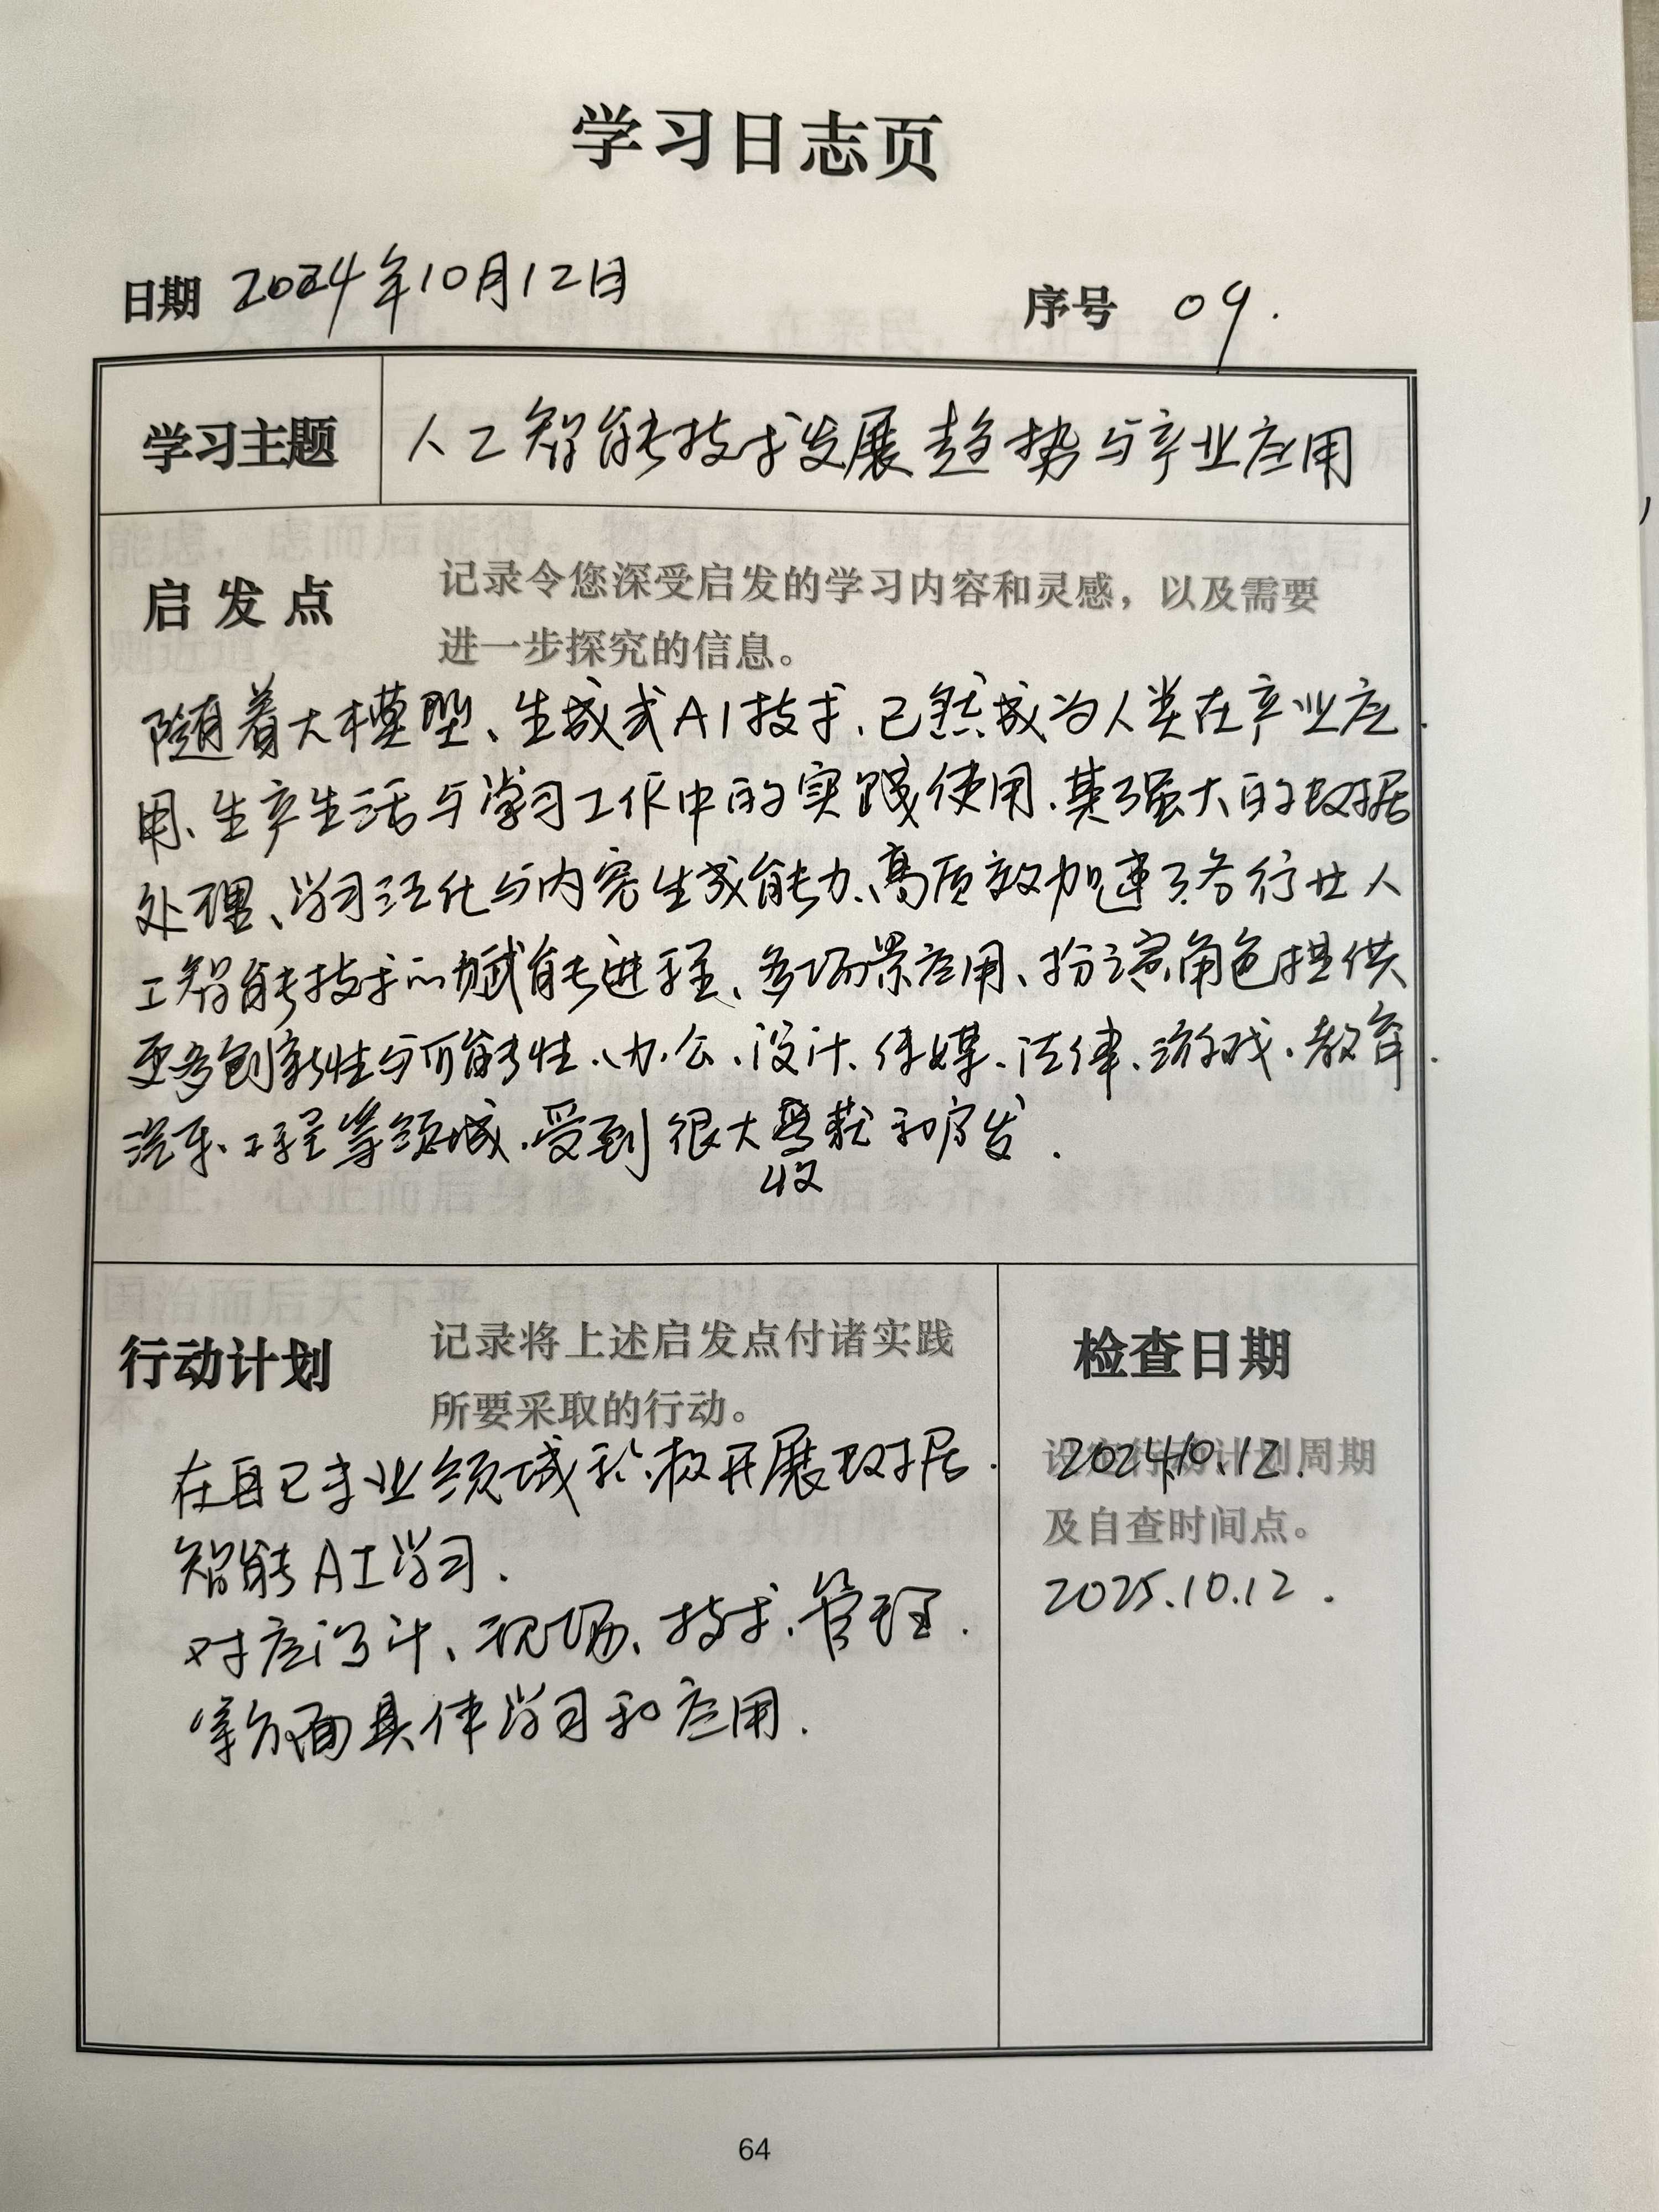 学习日志页
日期 2024年10月12日 序号 09.
学习主题 人工智能技术发展趋势与产业应用
启发点 记录令您深受启发的学习内容和灵感，以及需要
进一步探究的信息。
随着大模型、生成式AI技术、已然成为人类在产业应
用、生产生活与学习工作中的实践使用.其强大的数据
处理、学习泛化与内容生成能力、高质效加速了各行业人
工智能技术的赋能进程、多场景应用、扮演角色提供
更多创新性与可能性.办公、设计、传媒、法律、游戏、教育.
汽车、工程等领域.受到很大收获和启发.
行动计划 记录将上述启发点付诸实践
所要采取的行动。
在自己专业领域积极开展数据.
智能AI学习.
对应设计、现场、技术、管理.
等方面具体学习和应用.
检查日期
设定行动计划周期
2024.10.12.
及自查时间点。
2025.10.12.
64